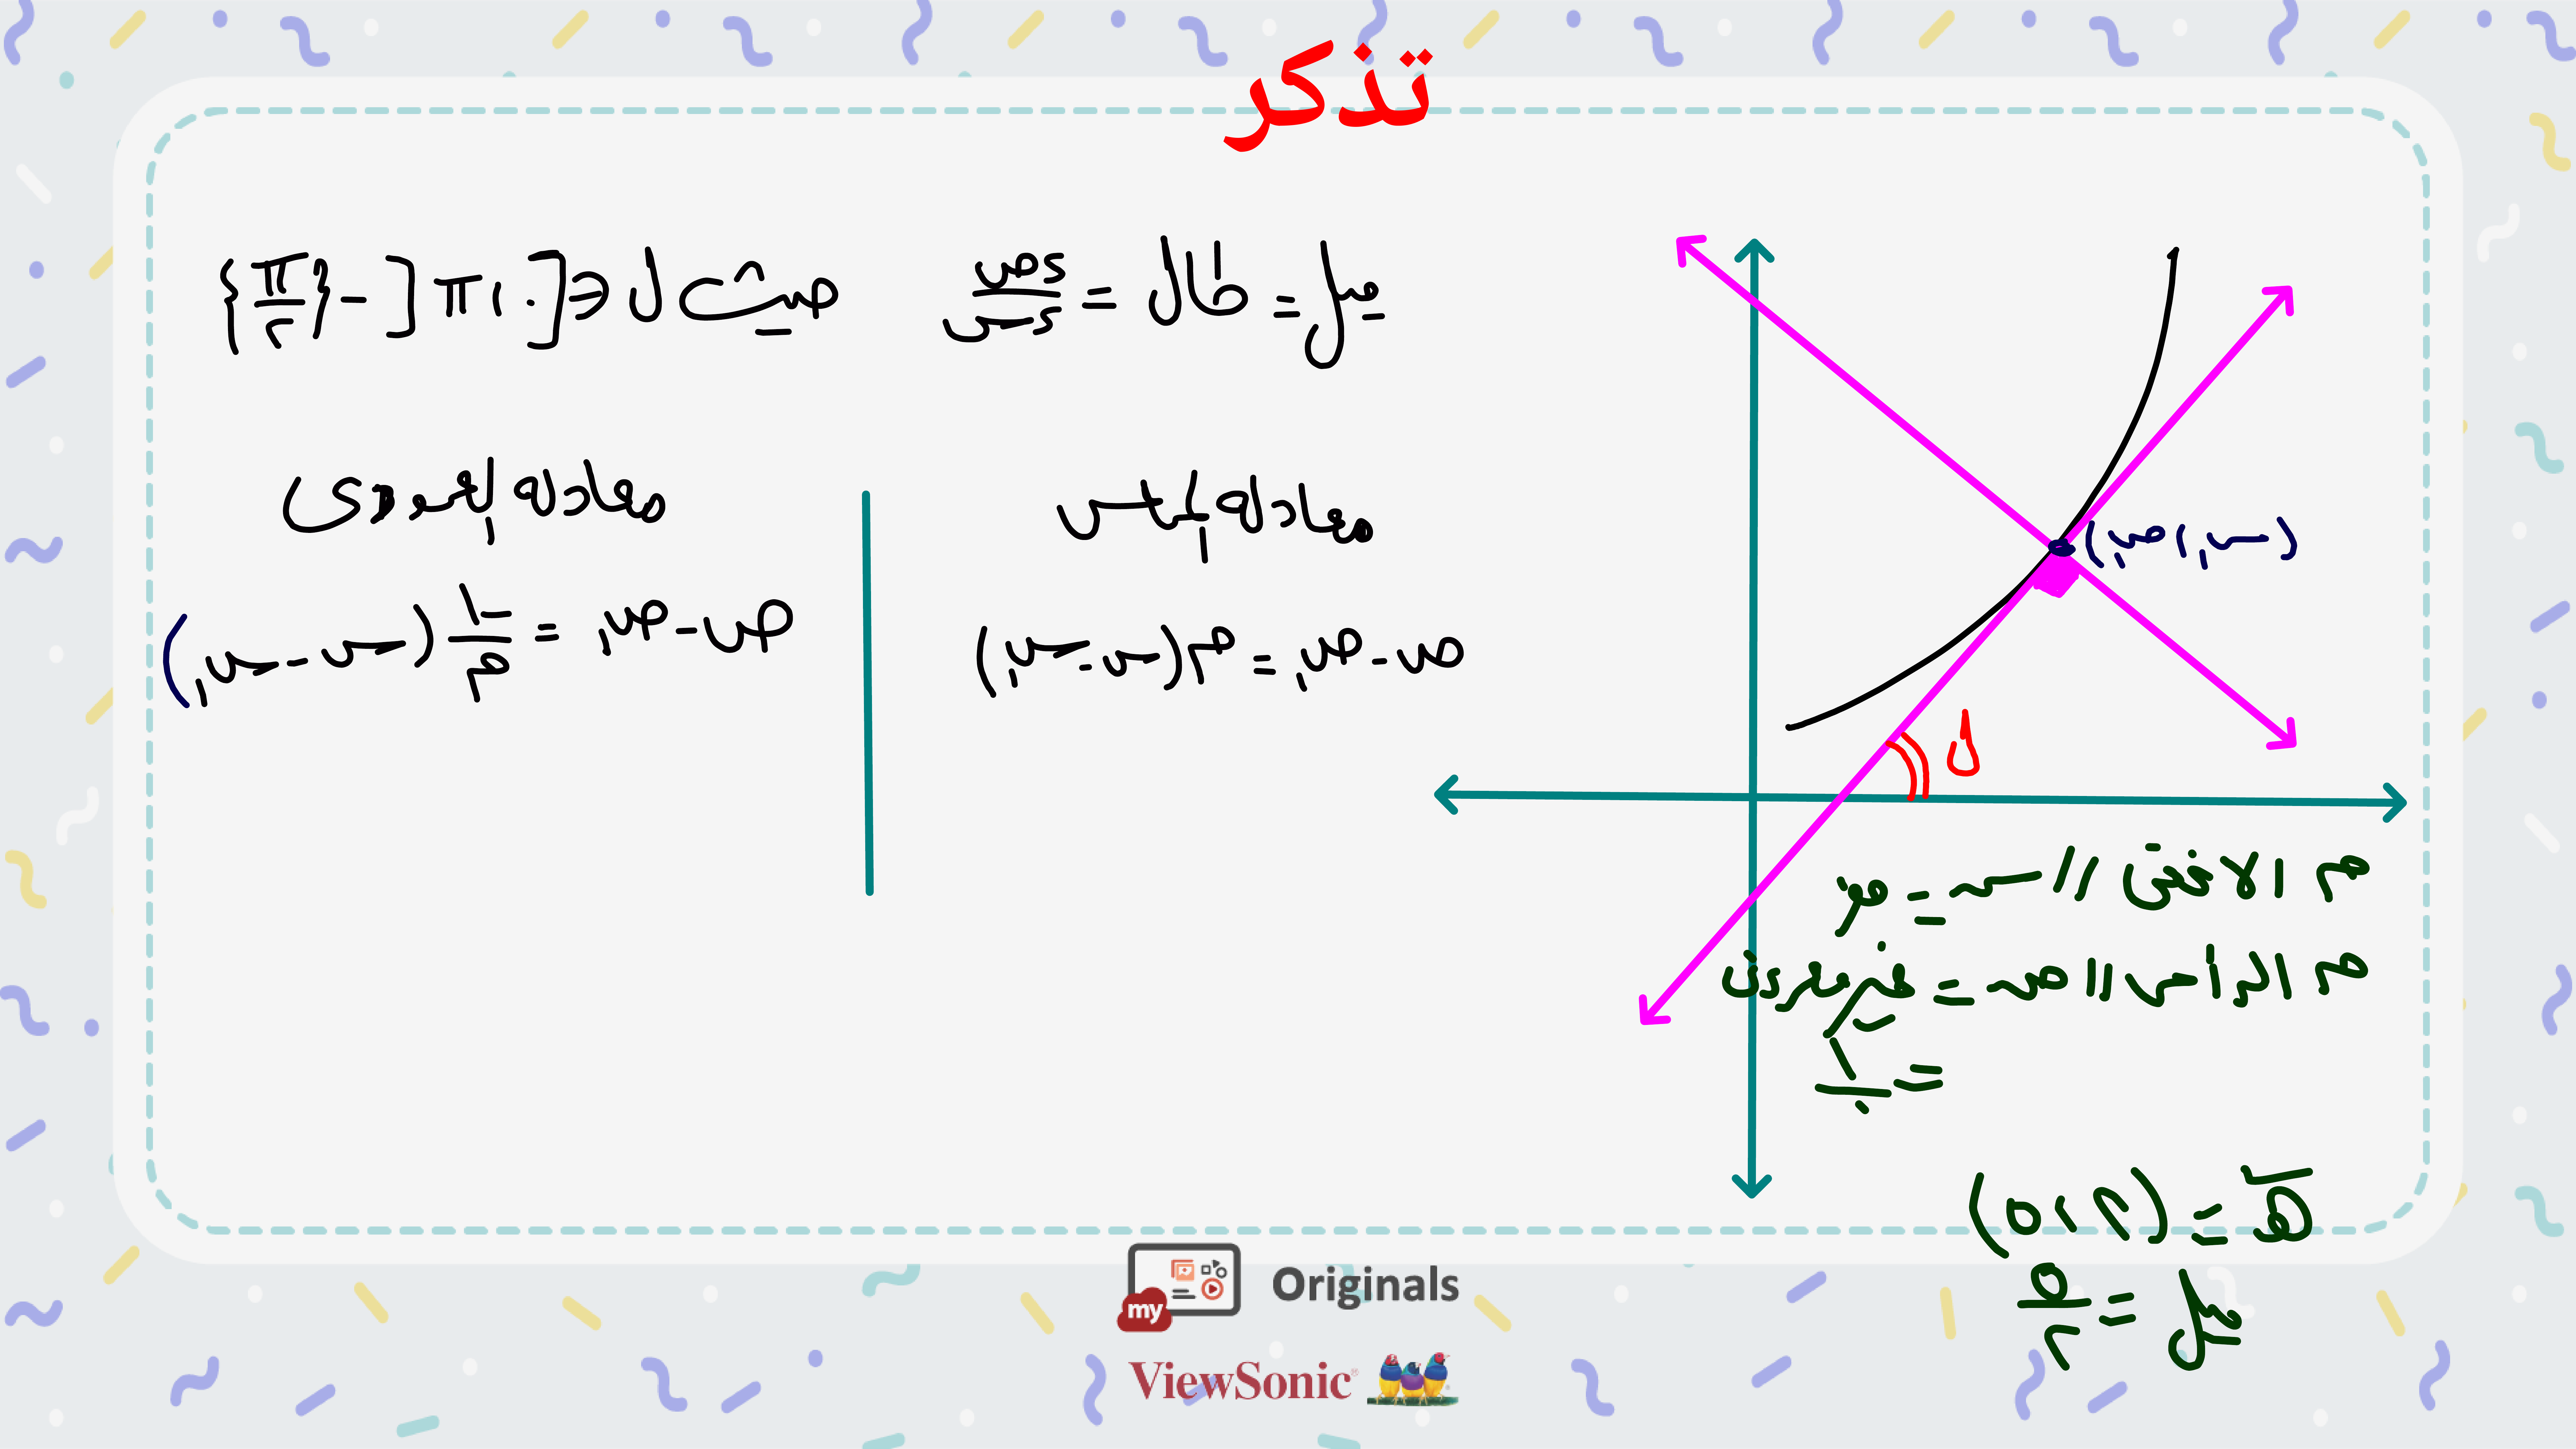 تذكر
ميل = ظال = ءص/ءس حيث ل ∈ ]٠، π[ - {π/٢}
معادلة المماس
ص - ص₁ = م(س - س₁)
معادلة العمودى
ص - ص₁ = -١/م (س - س₁)
(س₁، ص₁)
ل
م الافقى // س = صفر
م الرأسى // ص = غير معروف
= ١/٠
ى = (٢، ٥)
ميل = ٥/٢
my Originals
ViewSonic